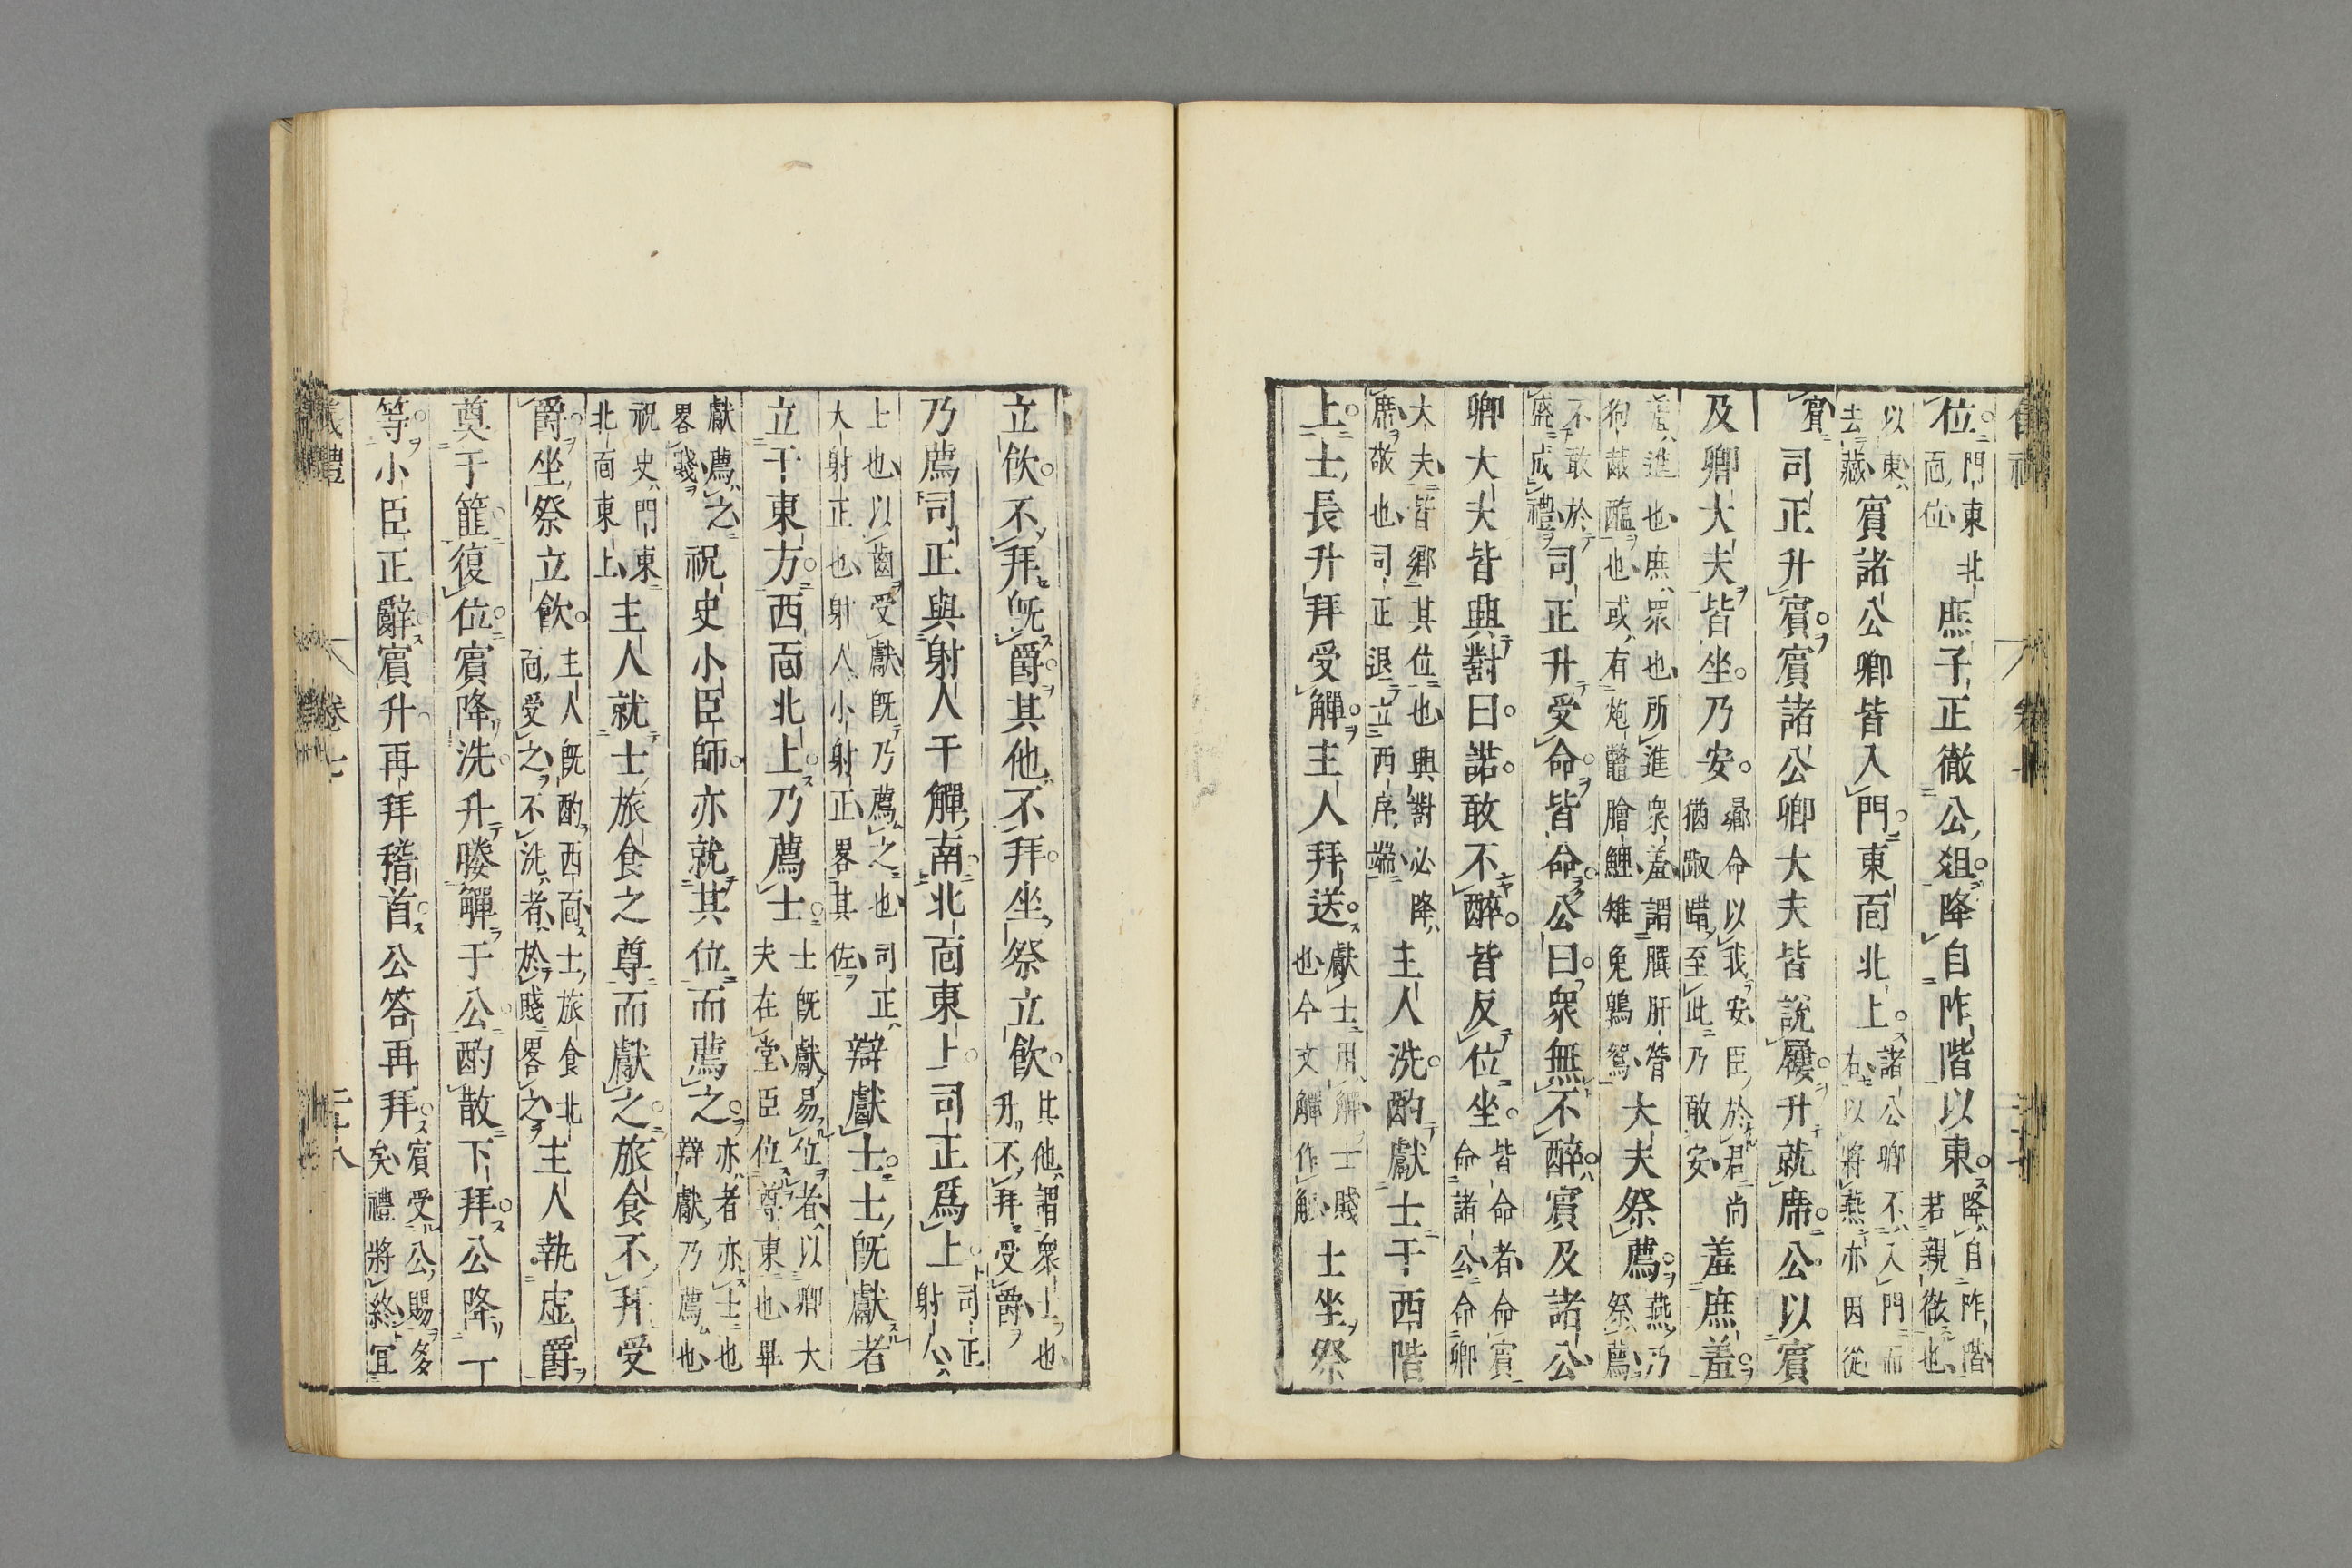 位門東北面位庶子正徹公俎降自阼階以東降自阼階君親徹也
以東去藏賓諸公卿皆入門東面北上諸公卿不入門而右以將燕亦因從
賓司正升賓賓諸公卿大夫皆說屨升就席公以賓
及卿大夫皆坐乃安曏命以我安臣於君尚猶踧踖至此乃敢安羞庶羞
羞進也庶眾也所進眾羞謂膷肝膋狗胾醢也或有炮鼈膾鯉雉兔鶉鴽大夫祭薦燕乃祭薦
不敢於盛成禮司正升受命皆命公曰眾無不醉賓及諸公
卿大夫皆興對曰諾敢不醉皆反位坐皆命者命賓命諸公命卿
大夫皆鄉其位也興對必降席敬也司正退立西序端主人洗酌獻士于西階
上士長升拜受觶主人拜送獻士用觶士賤也今文觶作觚士坐祭
立飲不拜既爵其他不拜坐祭立飲其他謂眾士也升不拜受爵
乃薦司正與射人于觶南北面東上司正爲上司正射人
上也以齒受獻既乃薦之也大射正也射人小射正畧其佐司正辯獻士士既獻者
立于東方西面北上乃薦士士既獻易位者以卿大夫在堂臣位尊東也畢
獻薦之畧賤祝史小臣師亦就其位而薦之亦者亦士也辯獻乃薦也
祝史門東北面東上主人就士旅食之尊而獻之旅食不拜受
爵坐祭立飲主人既酌西面士旅食北面受之不洗者於賤畧之主人執虛爵
奠于篚復位賓降洗升媵觶于公酌散下拜公降一
等小臣正辭賓升再拜稽首公答再拜賓受公賜多矣禮將終宜
儀禮 卷七